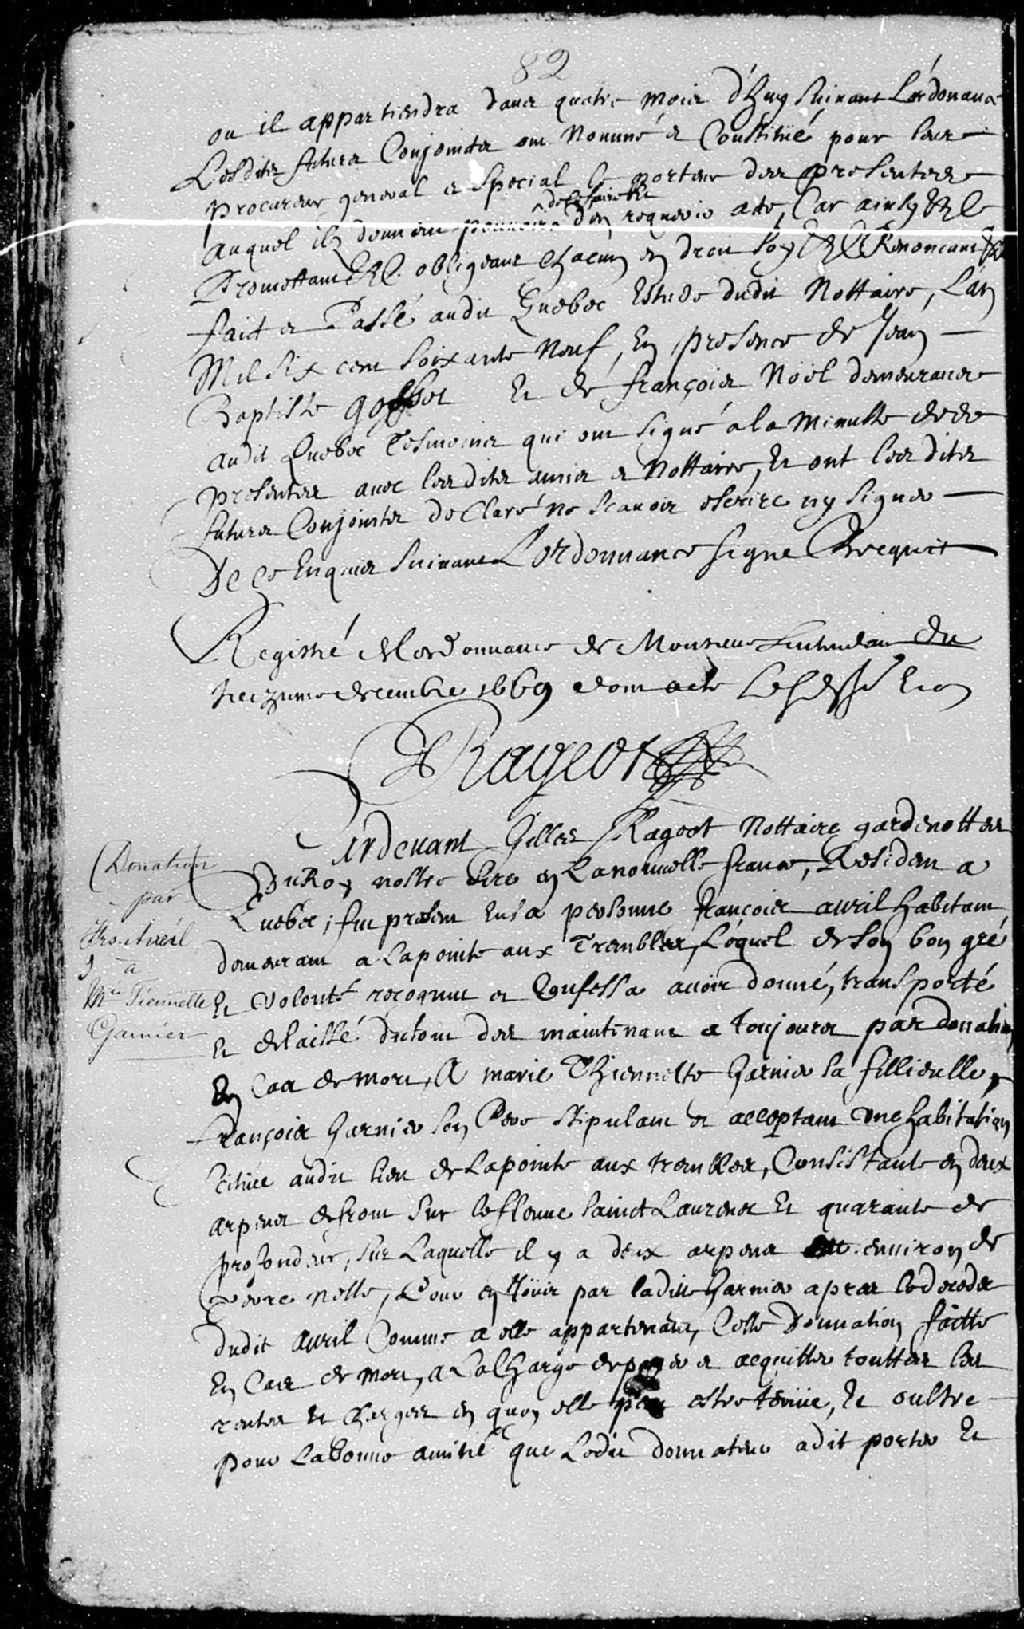 82
ou il appartiendra dans quatre mois d'huy suivant L'ordonance
Lesdits futurs Conjoincts ont Nommé et Constitué pour leur
procureur general et special le porteur des presentes
auquel ilz donnent pouvoir de ce faire et d'en requerir acte, Car ainsy &c
Promettant &c. obligeant chacun en droit soy &c Renonceant &c
fait et Passé audit Quebec Estude dudit Nottaire, L'an
Mil six cent soixante Neuf, En presence de Jean
Baptiste gosset Et de françois Noël demeurants
audit Quebec Tesmoins qui ont signé a la Minutte des
presentes avec lesdits amis et Nottaire, Et ont lesdits
futurs Conjoincts declaré ne scavoir escrire ny signer
De ce Enquis suivant L'ordonnance signé Becquet
Registré de lordonnance de Monsieur Lintendant du
treizieme decembre 1669 dont acte
Rageot
Pardevant Gilles Rageot Nottaire gardenottes
Du Roy nostre sire en La nouvelle france, Resident a
Quebec; fut present En sa personne françois avril habitant
demeurant a La pointe aux Trembles, Lequel de son bon gré
Et volonté recognut et Confessa avoir donné, transporté
Et delaissé du tout des maintenant a toujours par donation
En Cas de mort, A marie Thiennette Garnier sa fillieulle,
François Garnier son Pere stipulant et acceptant une habitation
scituée audit lieu de La pointe aux trembles, Consistante en deux
arpens de front sur le fleuve sainct Laurens Et quarante de
profondeur, sur Laquelle il y a deux arpens environ de
Terre nette, Pour en Jouir par ladite Garnier apres le deceds
dudit Avril Comme a elle appartenant, Cette Donnation faitte
En Cas de mort, A La Charge de payer et acquitter touttes les
rentes Et Charges en quoy elle peut estre tenüe, Et oultre
pour La bonne amitié que Ledit donnateur a dit porter Et
(Donation
par
a
Mie Tiennette
Garnier